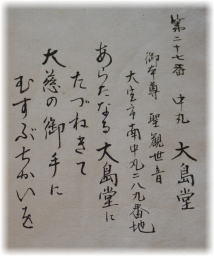 第二十七番 中丸 大島堂
御本尊 聖観世音
大宮市南中丸二八九番地
あらたなる大島堂に
たづねきて
大慈の御手に
むすぶちかいを